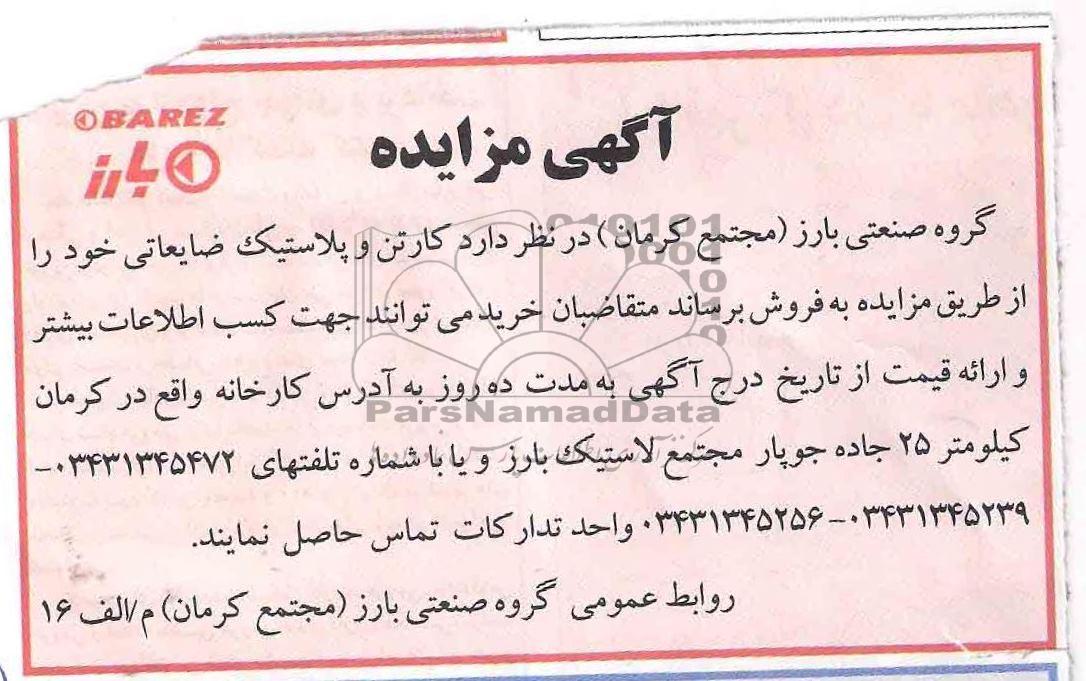 BAREZ
بارز
آگهی مزایده
گروه صنعتی بارز (مجتمع کرمان) در نظر دارد کارتن و پلاستیک ضایعاتی خود را
از طریق مزایده به فروش برساند متقاضیان خرید می توانند جهت کسب اطلاعات بیشتر
و ارائه قیمت از تاریخ درج آگهی به مدت ده روز به آدرس کارخانه واقع در کرمان
کیلومتر ۲۵ جاده جوپار مجتمع لاستیک بارز و یا با شماره تلفتهای ۰۳۴۳۱۳۴۵۴۷۲-
۰۳۴۳۱۳۴۵۲۳۹-۰۳۴۳۱۳۴۵۲۵۶ واحد تدارکات تماس حاصل نمایند.
روابط عمومی گروه صنعتی بارز (مجتمع کرمان) م/الف ۱۶
ParsNamadData